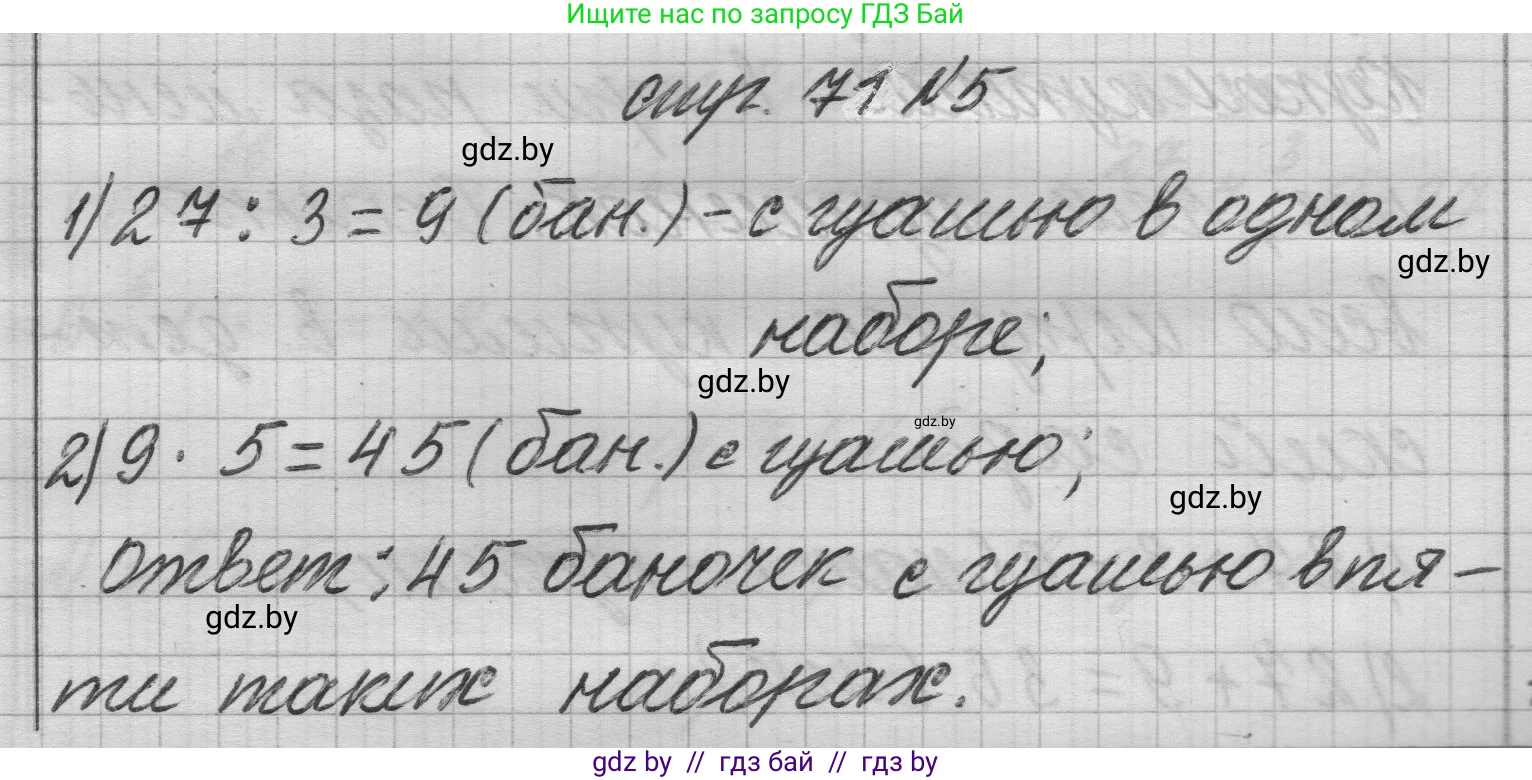 Ищите нас по запросу ГДЗ Бай
стр. 71 №5
gdz.by
1) 27 : 3 = 9 (бан.) – с гуашью в одном
gdz.by
наборе;
gdz.by
gdz.by
2) 9 · 5 = 45 (бан.) с гуашью;
gdz.by
Ответ: 45 баночек с гуашью в пя-
gdz.by
ти таких наборах.
gdz by // гдз бай // гдз by